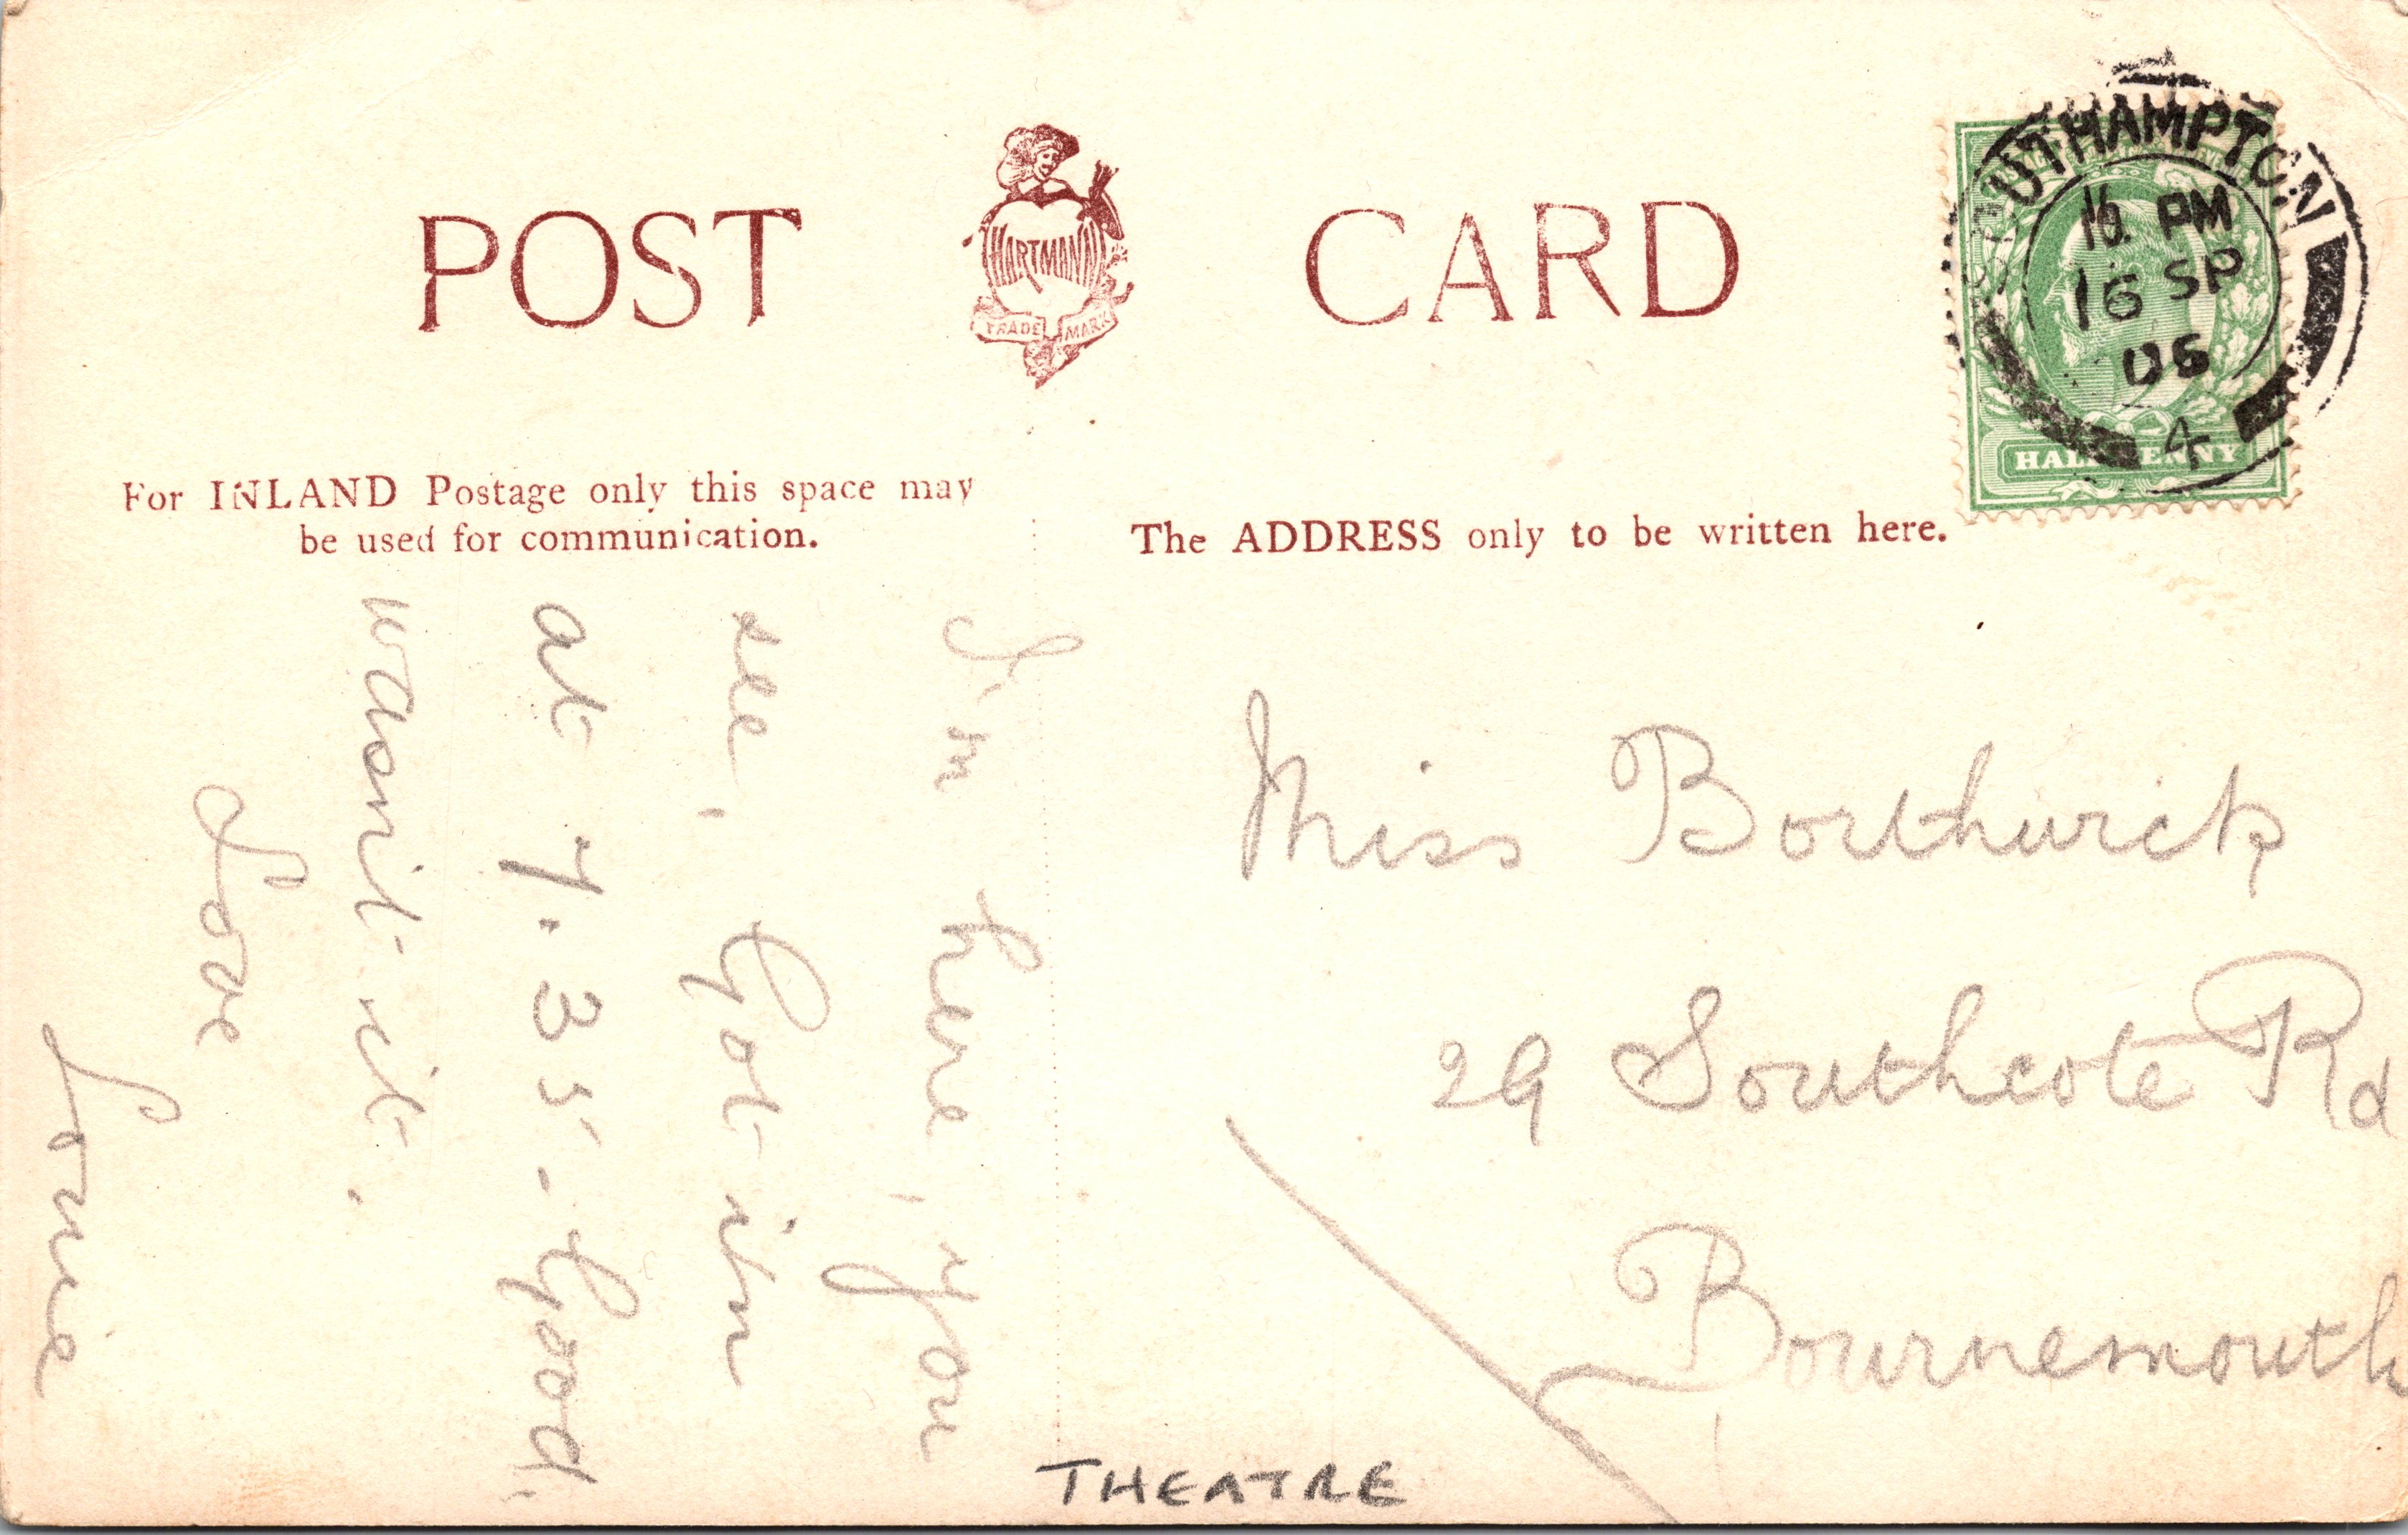 POST CARD
HARTMANN
TRADE MARK
SOUTHAMPTON
PM
16 SP
06
4
HALFPENNY
For INLAND Postage only this space may
be used for communication.
The ADDRESS only to be written here.
I'm here, you
see, Got in
at 7.35 - Good,
wasn't it.
Love
Lorrie
Miss Borthwick
29 Southcote Rd
Bournemouth
THEATRE